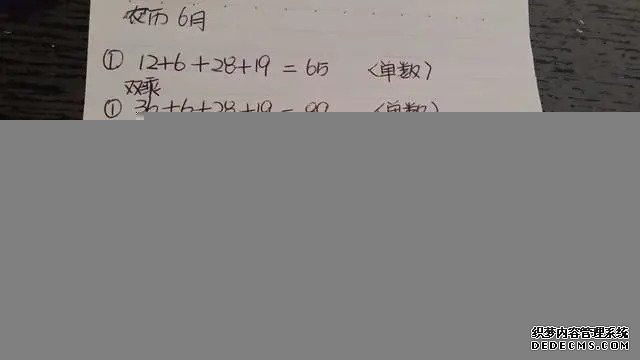 农历6月
① 12+6+28+19 = 65 (单数)
双乘
① 36+6+28+19 =
织梦内容管理系统
DEDECMS.COM